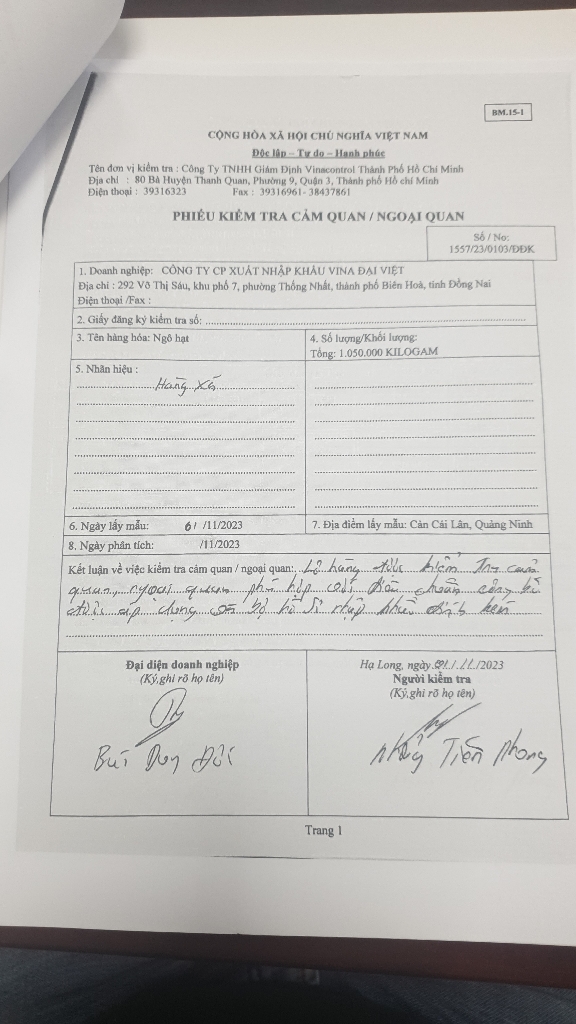 BM.15-1
CỘNG HÒA XÃ HỘI CHỦ NGHĨA VIỆT NAM
Độc lập – Tự do – Hạnh phúc
Tên đơn vị kiểm tra : Công Ty TNHH Giám Định Vinacontrol Thành Phố Hồ Chí Minh
Địa chỉ : 80 Bà Huyện Thanh Quan, Phường 9, Quận 3, Thành phố Hồ chí Minh
Điện thoại : 39316323 Fax : 39316961- 38437861
PHIẾU KIỂM TRA CẢM QUAN / NGOẠI QUAN
Số / No:
1557/23/0103/ĐĐK
1. Doanh nghiệp: CÔNG TY CP XUẤT NHẬP KHẨU VINA ĐẠI VIỆT
Địa chỉ : 292 Võ Thị Sáu, khu phố 7, phường Thống Nhất, thành phố Biên Hoà, tỉnh Đồng Nai
Điện thoại /Fax :
2. Giấy đăng ký kiểm tra số:
3. Tên hàng hóa: Ngô hạt
4. Số lượng/Khối lượng:
Tổng: 1.050.000 KILOGAM
5. Nhãn hiệu :
Hàng xá
6. Ngày lấy mẫu: 01 /11/2023
7. Địa điểm lấy mẫu: Cản Cái Lân, Quảng Ninh
8. Ngày phân tích: /11/2023
Kết luận về việc kiểm tra cảm quan / ngoại quan: Lô hàng được kiểm tra cảm
quan, ngoại quan phù hợp với tiêu chuẩn công bố
được áp dụng và bộ hồ sơ nhập khẩu đính kèm
Đại diện doanh nghiệp
(Ký,ghi rõ họ tên)
Bùi Duy Đức
Hạ Long, ngày 01/11/2023
Người kiểm tra
(Ký,ghi rõ họ tên)
Tiến Phong
Trang 1